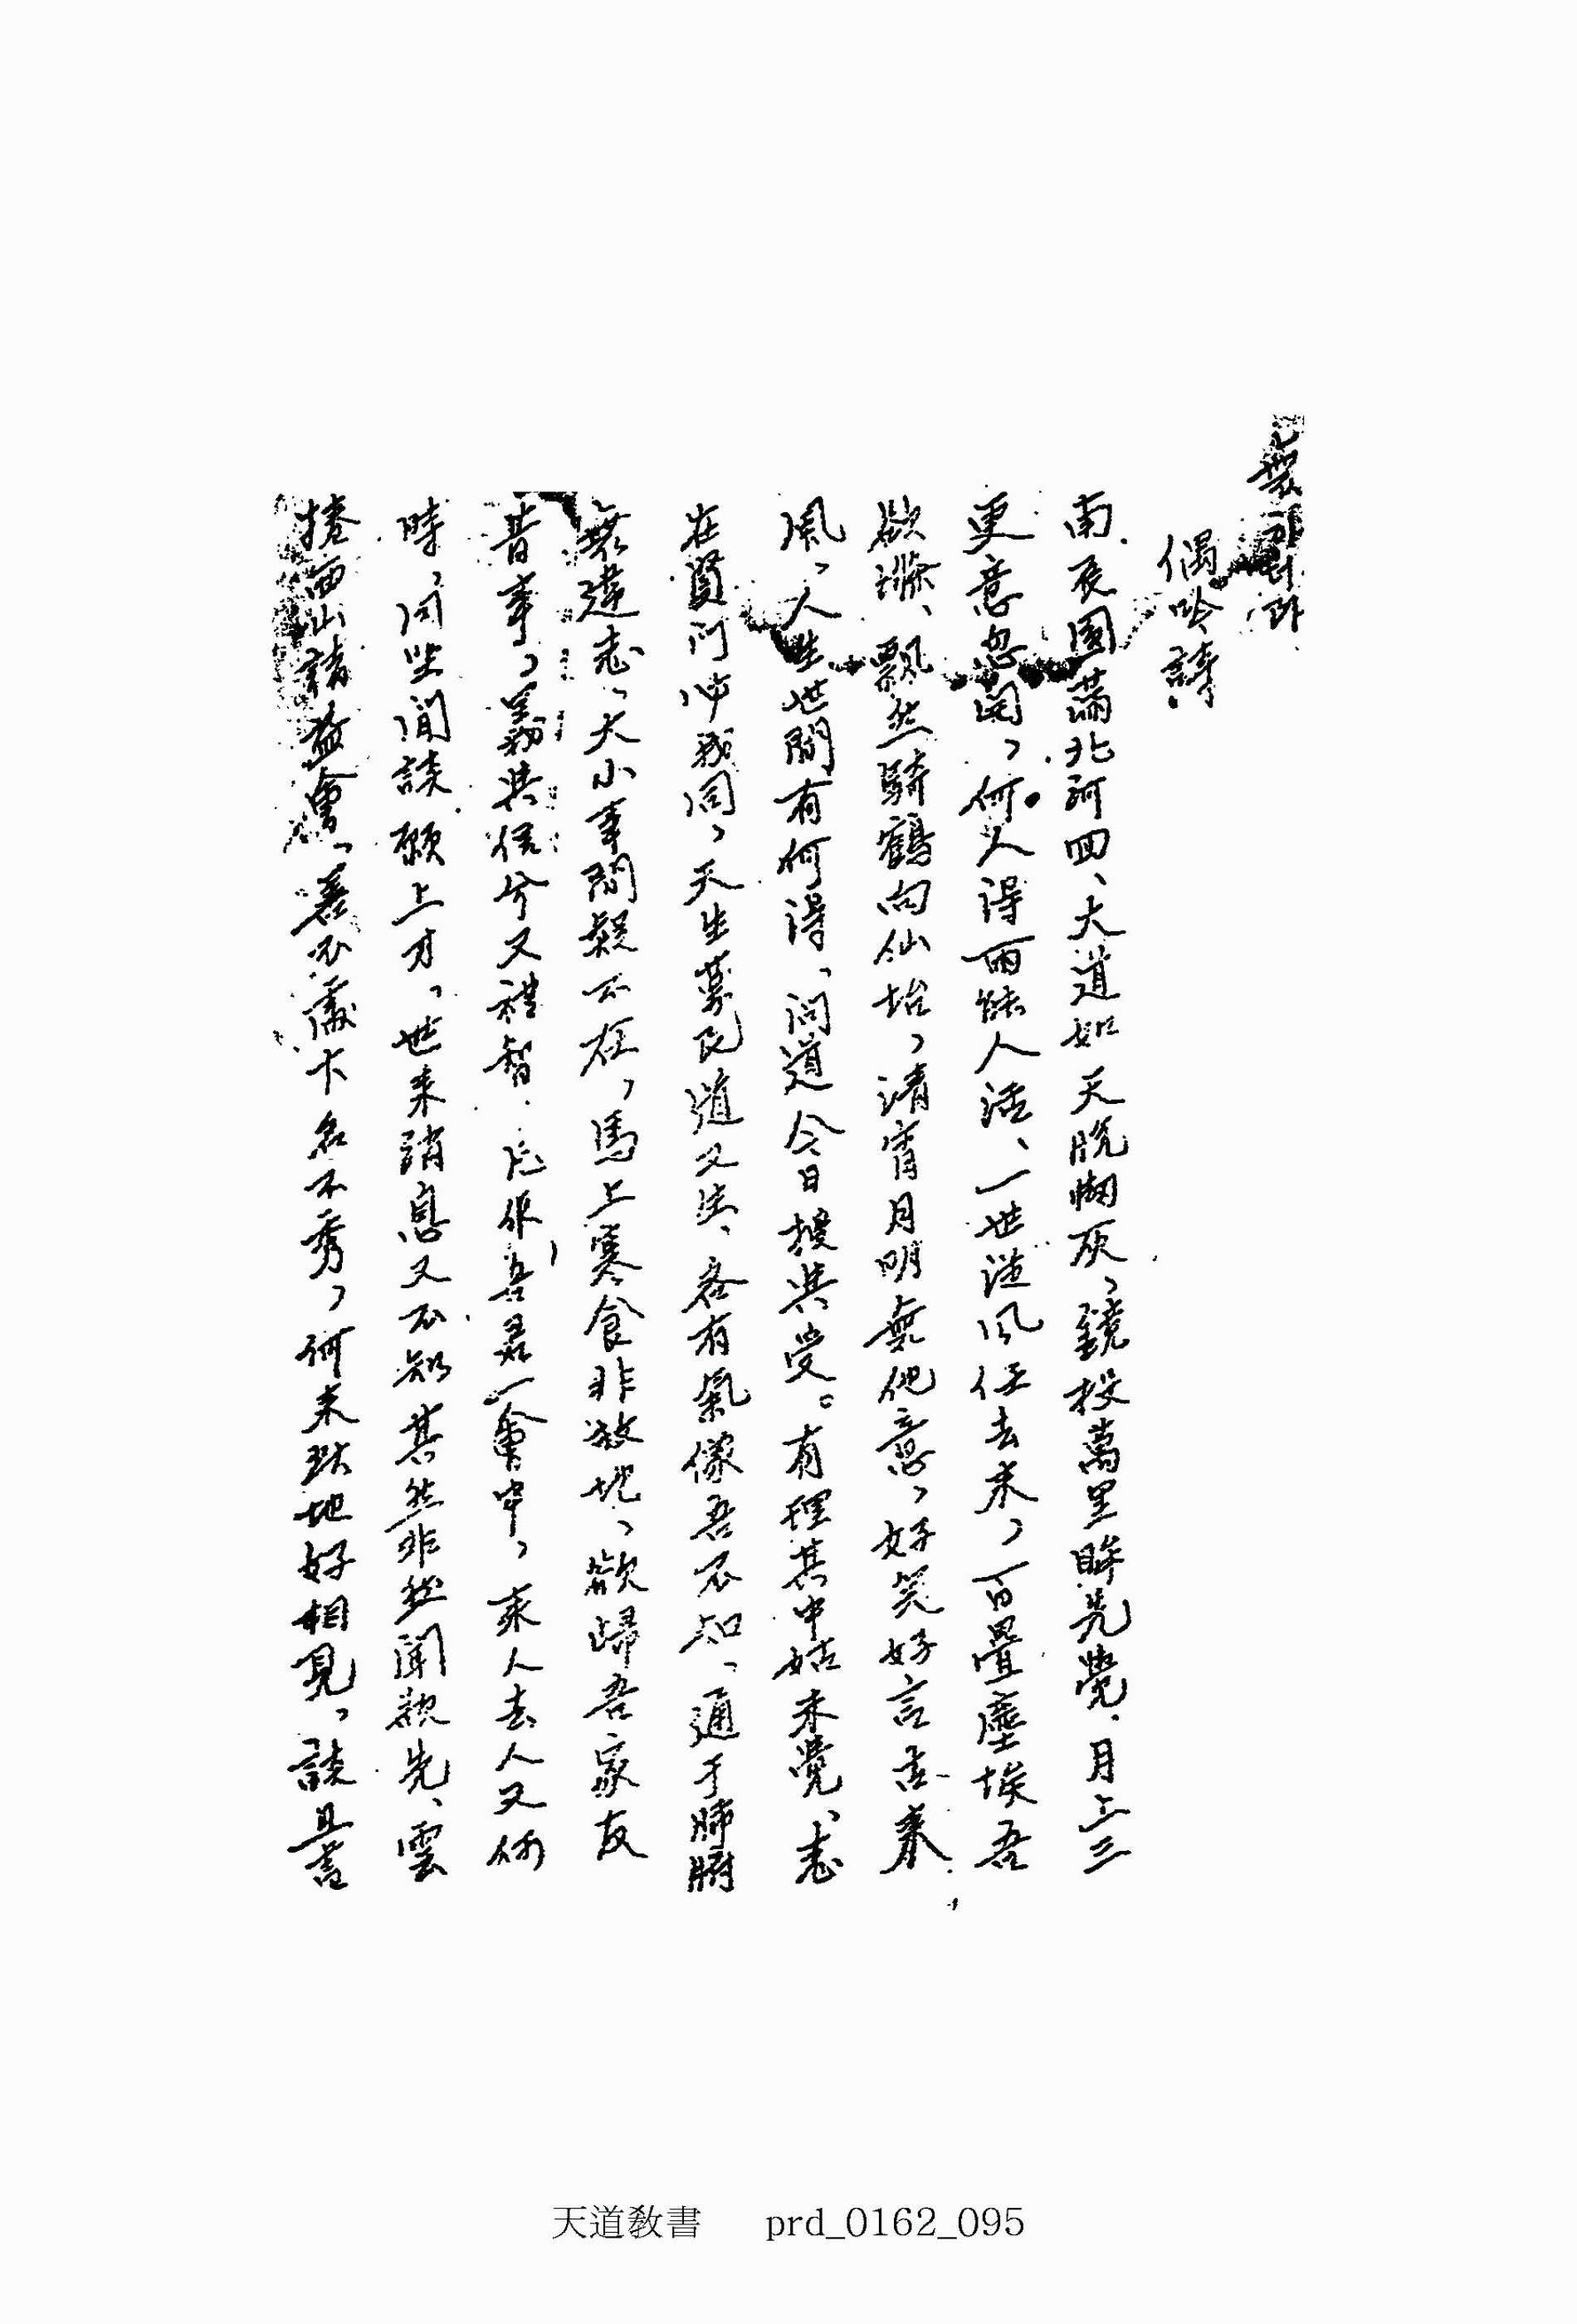 偶吟詩
南辰圓滿北河回、大道如天脫刼灰、鏡投萬里眸先覺、月上三
更意忽開、何人得雨能人活、一世從風任去來、百疊塵埃吾
欲滌、飄然騎鶴向仙坮、清宵月明無他意、好笑好言古來
風、人生世間有何得、問道今日授與受。有理其中姑未覺、志
在賢門必我同、天生萬民道又生、各有氣像吾不知、通于肺腑
無違志、大小事間疑不在、馬上寒食非故地、欲歸吾家友
昔事、義與信兮又禮智 凡作吾君一會中、來人去人又何
時、同坐閒談願上才、世來消息又不知 其然非然聞欲先、雲
捲西山諸益會、善不處卞名不秀、何來此地好相見、談且書
天道教書 prd_0162_095